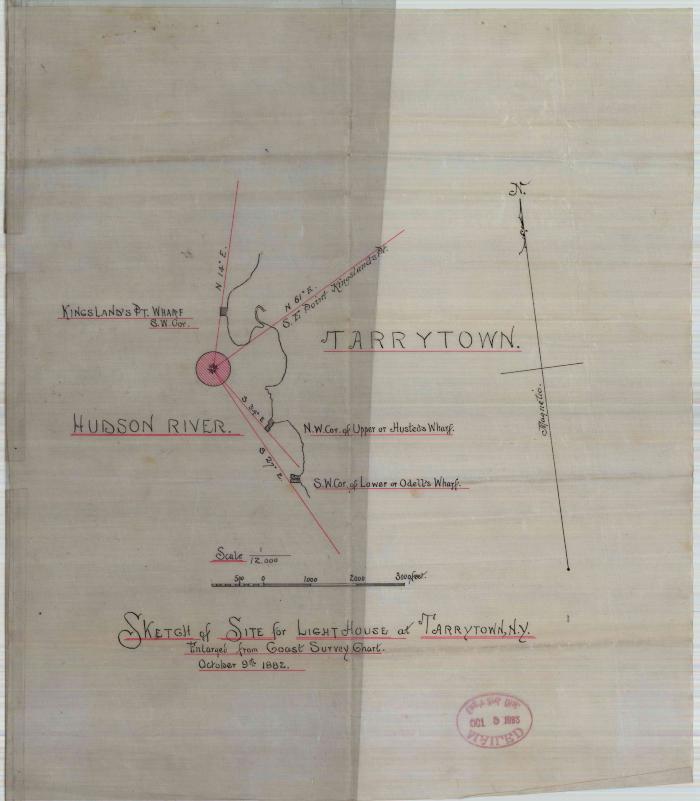 N.
N 14° E.
N 61° E.
S.E. Point Kingsland's Pt.
KINGSLAND'S PT. WHARF
S.W. Cor.
TARRYTOWN.
Magnetic.
HUDSON RIVER.
N.W. Cor. of Upper or Husted's Wharf.
S 27° E.
S.W. Cor. of Lower or Odell's Wharf.
Scale 1/12.000
500 0 1000 2000 3000 feet.
SKETCH of SITE for LIGHT HOUSE at TARRYTOWN, N.Y.
Enlarged from Coast Survey Chart.
October 9th 1882.
MAILED